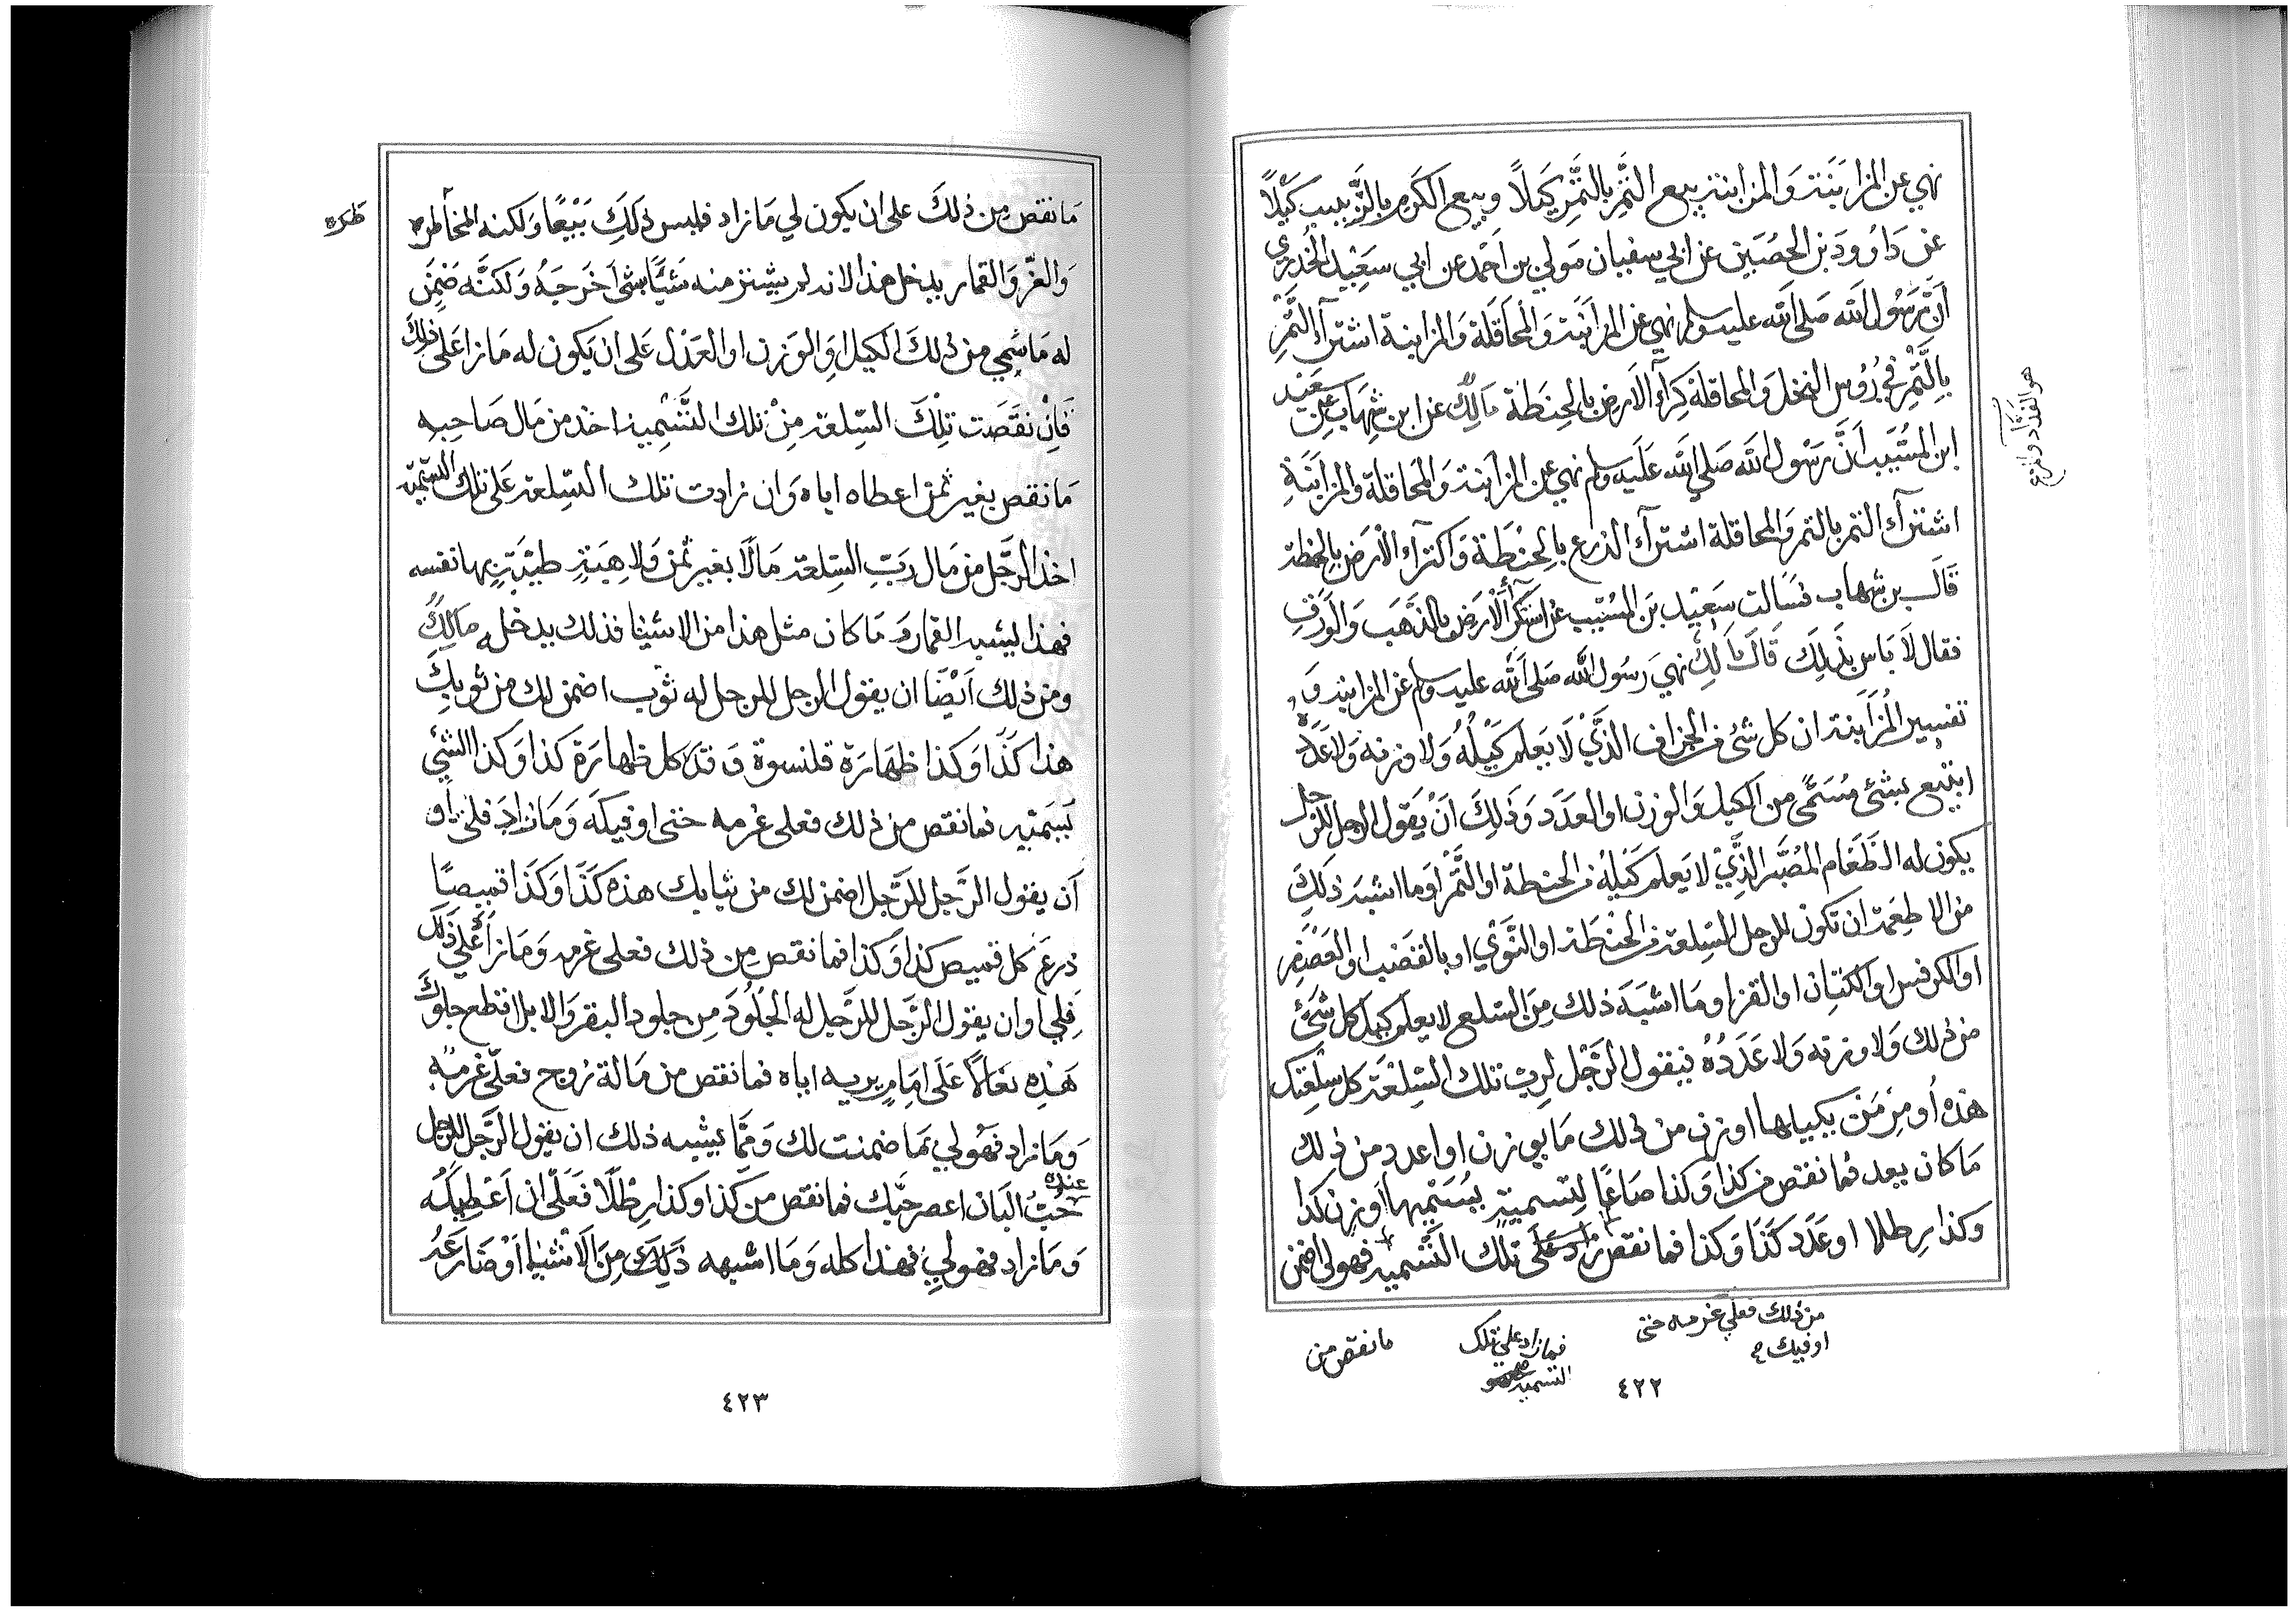 نهي عن المزابَنَة وَالمزابنة بيع الثَّمَر بالتَّمْر كَيلاً وبيع الكَرَم بالزَّبيب كَيْلاً
عن دَاوُودَ بن الحُصَين عن ابي سفيان مَولي بن احْمد عن ابي سَعِيْد الخُدْري
اَنَّ رَسُول الله صَلى الله عليه وسلم نهي عن المزابَنَة وَالمحَاقَلة وَالمزابنة اشترآء الثَّمَر
بالتَّمْر في رُؤس النخل وَالمحاقلة كِرَآء الاَرض بالحِنطَة مَالِك عن ابن شِهَاب عن سَعِيْد
ابن المسُيَب اَنَّ رَسُول الله صَلي الله عَلَيه وسلم نهي عن المزابنة وَالمحَاقلة والمزابَنَة
اشترآء الثمر بالتمر وَالمحاقلة اشترآء الزرع بالحِنْطَة وَاكترآء الاَرْض بالحنطة
قَالَ بن شهاب فسَالت سَعِيْد بن المسُيّب عن استكرآء الاَرض بالذَّهَب وَالوَرِق
فقال لاَ بَاس بذَلِك قَالَ مَالِك نهيَ رَسُول الله صَلى اللَه عليه وسلم عن المزابنة وَ
تفسِير المُزَابَنة ان كل شئ من الجزاف الذَّيْ لاَ يَعلم كَيْلُهُ وَلا وزنه وَلاعَدَدَه
ابتيع بشئ مُسَمًّى من الكيل وَالوزن او العَدَد وَذَلِكَ اَنْ يَقول الرجل للرجل
يكون له الطَّعَام المُصَبَّر الذِّيْ لا يَعلم كَيْلُهُ من الحنطة او التَّمْر اوما اشبه ذَلِكَ
من الاطعِمَة ان تكون للرجل السِّلعة من الحنطَة او النَّوَيْ او بالقَضب او العَصْفر
او الكرفس او الكتان او القز او مَا اشبَه ذلك مِنَ السّلع لا يعلم كيل كل شَئ
من ذلك وَلا وزنه وَلا عَدَدُهُ فيقول الرَّجُل لرب تلك السِّلعَة كل سِلْعتك
هذه اُو مِرْ مَنْ يكيلها او زن من ذلك مَا يوزن او اعدد من ذلك
مَا كان يعد فما نقص من كذا وَكذا صَاعًا لِتسمية يسُمّيها اَو وزن كذا
وكذا رطلا او عَدَد كَذَا وَكذا فما نقص زاد عَلى تلك التَّسمية فهو لى اضمن
هو الفذاذ واقع
من ذلك فعلي غرمه حتى
اوفيك
فما زاد علي تلك
التسمية فهو
ما نقص من
٤٢٢
مَا نقص مِن ذلكَ على ان يكون لي مَا زاد فليس ذلَكَ بَيْعًا وَلكنه المخاطره
طره
وَالغرَر وَالقمار يدخل هذا لانه لم يشتر منه شَيًا بشئ اَخرَجَهُ وَلكنَّه ضَمِن
له مَا سُمِي من ذلكَ الكيل اَوِ الوَزن او العَدَل عَلى ان يَكون له مَا زا عَلى ذلكَ
فَاِنْ نقَصَت تِلْكَ السِّلعة مِنْ تلك التَّسْمِية اخذ من مَال صَاحِبه
مَا نقص بغير ثمن اعطاه اياه وَان زادت تلك السِّلعة عَلى تلك التسمِيّة
اخذ الرَّجُل من مَال رَبّ السِّلعة مَالاً بغير ثمن وَلا هِبَةٍ طيِّبَةٍ بها نفسه
فهذا يشبه القمار وَ مَا كان مثل هذا من الاشيا فذلك يدخله مَالِكُ
ومن ذلك اَيْضًا ان يقول الرجل للرجل له ثوب اضمن لك من ثوبكَ
هذا كَذَا وَكذا ظهَارَة قلنسوة وَ قدر كل ظهارَة كذا وَكذا الشئي
يُسَمّيه فما نقص من ذلك فعلى غرمه حتى اوفيكَه وَمَا زادَ فلى او
اَن يقول الرَّجل للرَّجل اضمن لك من ثيابك هذه كَذَا وَكَذَا قميصًا
ذرعَ كل قميص كذا وَكذا فما نقص مِن ذلك فعلى غرمه وَ مَا زاد عَلي ذلَكَ
فِلي او ان يقول الرَّجل للرَّجل له الجلُودَ مِن جلود البقر وَالابل اقطع جلوَدكَ
هَذِه نعَالاً عَلَى امَامٍ يريه اياه فما نقص من مَائة زوج فعلّى غرمُه
وَمَا زاد فهُولي بَما ضمنت لك وَ مِمَّا يشبه ذلك ان يقول الرَّجل للرجل
عنده
حُبُّ البَان اعصر حَبّك فما نقص من كذا وكذا رِطْلاً فعَلّى ان اَعْطِيكَه
وَ مَا زاد فهولي فهذا كله وَ مَا اشبهه ذَلِكَ مِنَ الاَشْيَاِ اَوْ ضَارَعَهُ
٤٢٣